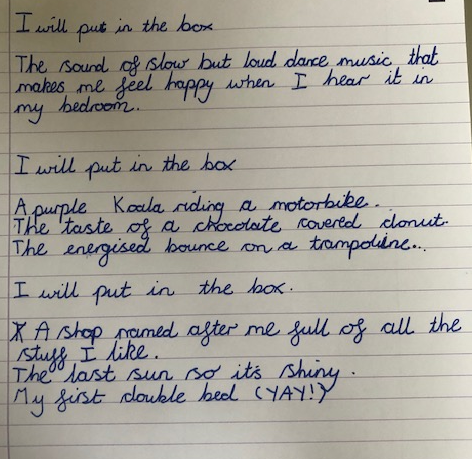 I will put in the box
The sound of slow but loud dance music that
makes me feel happy when I hear it in
my bedroom.
I will put in the box
A purple Koala riding a motorbike.
The taste of a chocolate covered donut.
The energised bounce on a trampoline..
I will put in the box.
A shop named after me full of all the
stuff I like.
The last sun so it's shiny.
My first double bed (YAY!)